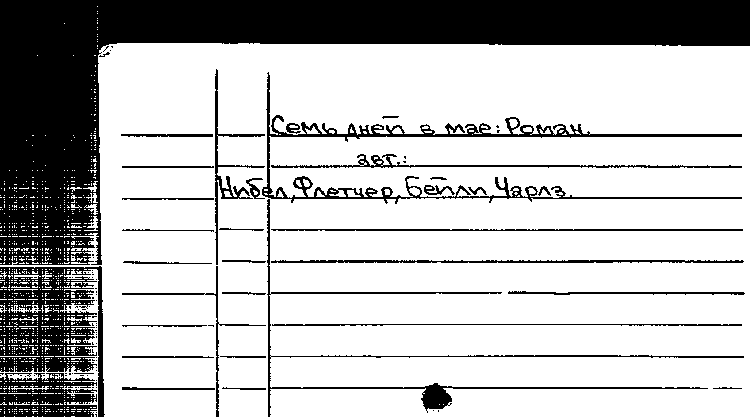 Семь дней в мае: Роман.
авт.:
Нибел, Флетчер, Бейли, Чарлз.